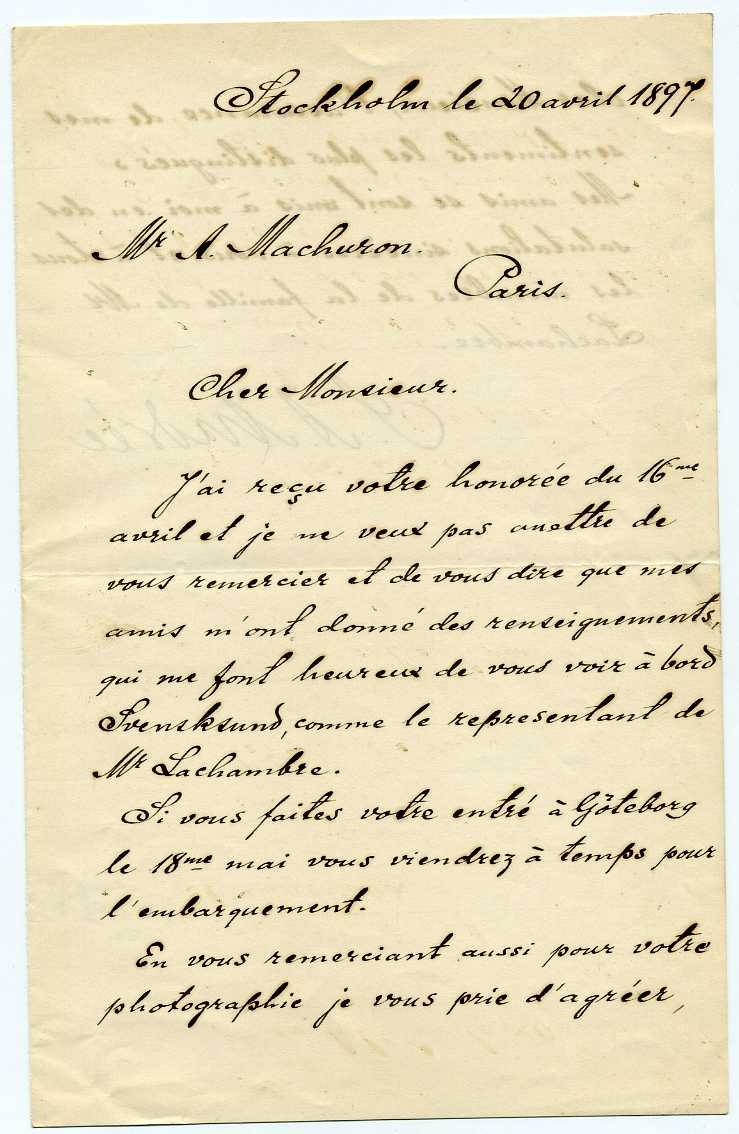 Stockholm le 20 avril 1897.
Mr A. Machuron.
Paris.
Cher Monsieur.
J'ai reçu votre honorée du 16me
avril et je ne veux pas omettre de
vous remercier et de vous dire que mes
amis m'ont donné des renseignements,
qui me font heureux de vous voir à bord
Svensksund, comme le representant de
Mr Lachambre.
Si vous faites votre entré à Göteborg
le 18me mai vous viendrez à temps pour
l'embarquement.
En vous remerciant aussi pour votre
photographie je vous prie d'agréer,